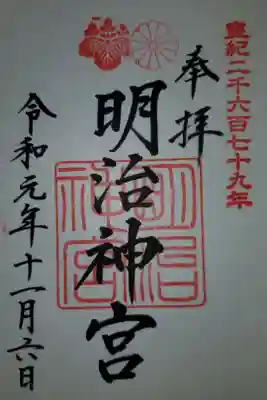 皇紀二千六百七十九年
奉拝
明治神宮
令和元年十一月六日
明治神宮